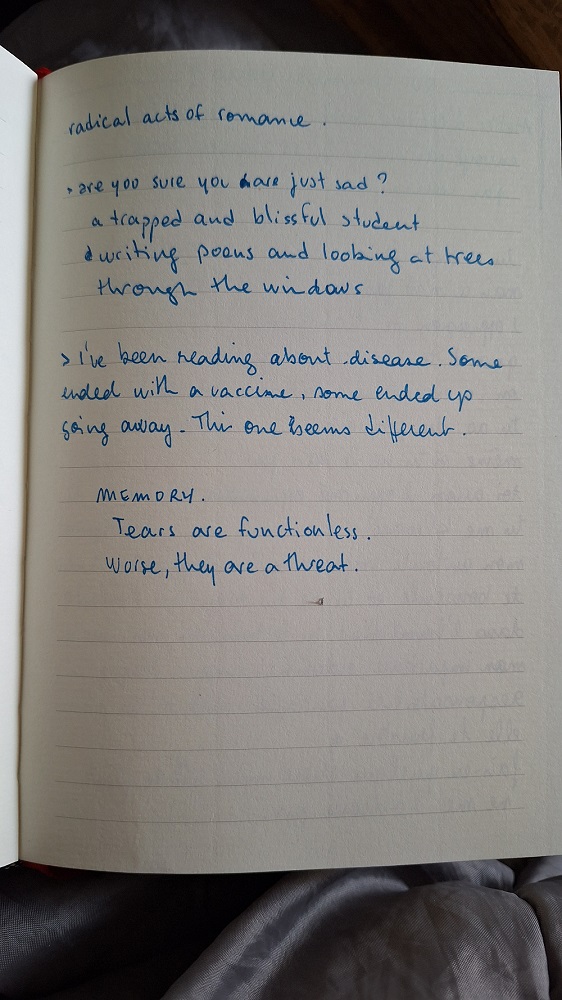 radical acts of romance.
> are you sure you are just sad?
a trapped and blissful student
writing poems and looking at trees
through the windows
> I've been reading about disease. Some
ended with a vaccine, some ended up
going away. This one seems different.
MEMORY.
Tears are functionless.
Worse, they are a threat.